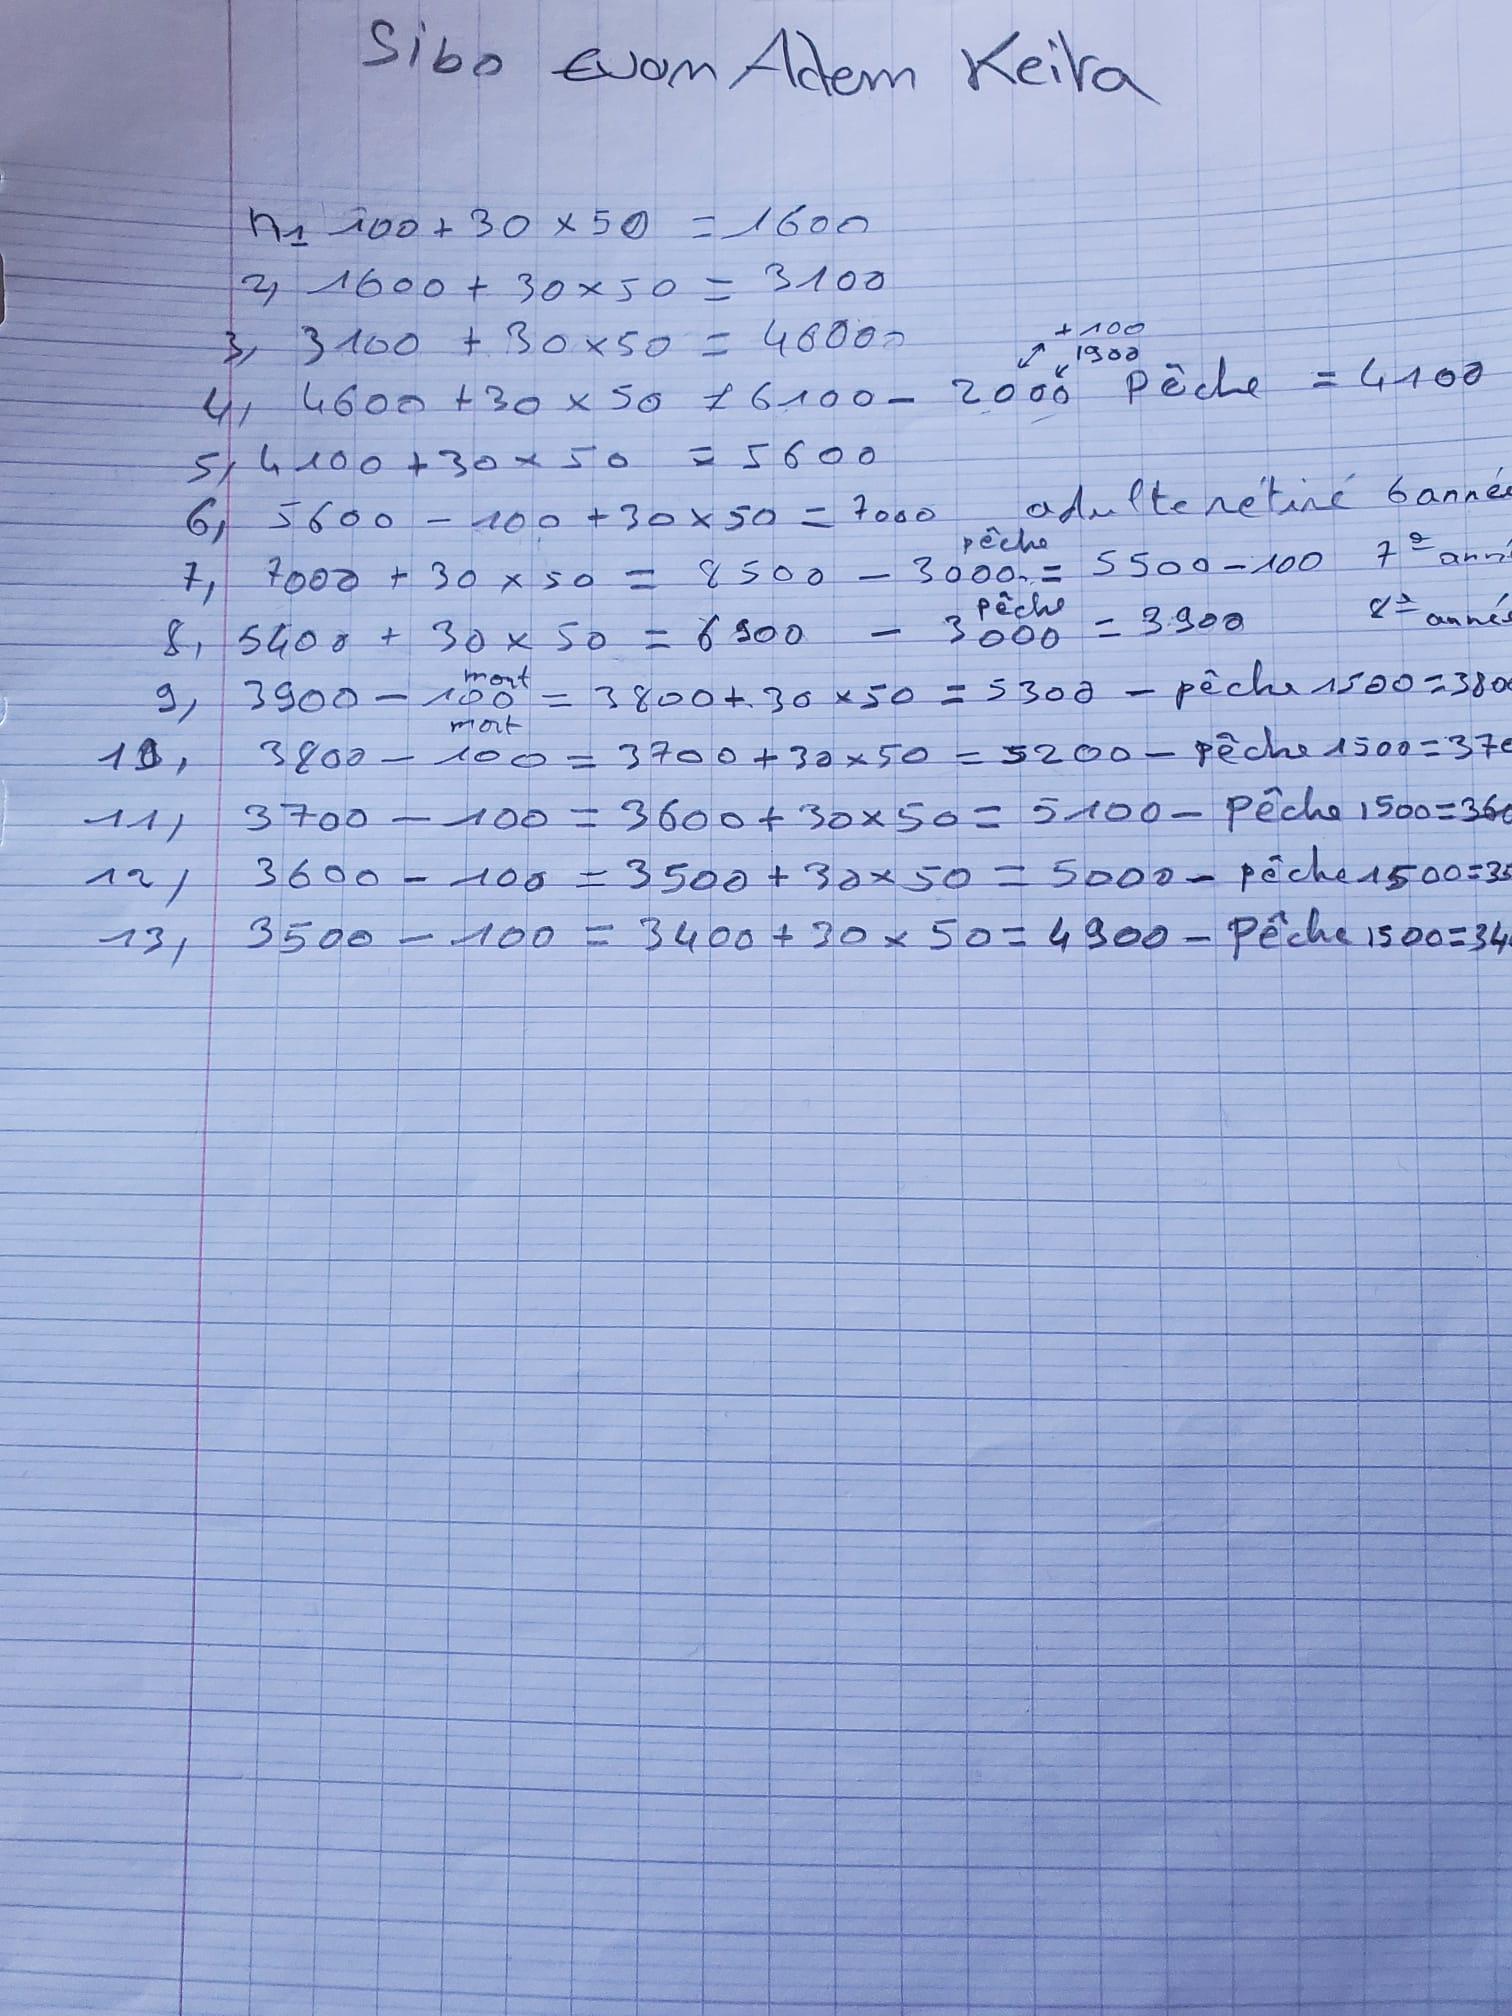 Sibo Evan Adem Keira
n1 100 + 30 x 50 = 1600
2, 1600 + 30 x 50 = 3100
3, 3100 + 30 x 50 = 46000
+ 100
1900
4, 4600 + 30 x 50 = 6100 - 2000 Pêche = 4100
5, 4100 + 30 x 50 = 5600
6, 5600 - 100 + 30 x 50 = 7000 adulte retiré 6 année
pêche
7, 7000 + 30 x 50 = 8500 - 3000 = 5500 - 100 7e
pêche
8, 5400 + 30 x 50 = 6900 - 3000 = 3900 8e année
mort
9, 3900 - 100 = 3800 + 30 x 50 = 5300 - pêche 1500 = 380
mort
10, 3800 - 100 = 3700 + 30 x 50 = 5200 - pêche 1500 = 370
11, 3700 - 100 = 3600 + 30 x 50 = 5100 - Pêche 1500 = 360
12, 3600 - 100 = 3500 + 30 x 50 = 5000 - pêche 1500 = 35
13, 3500 - 100 = 3400 + 30 x 50 = 4900 - Pêche 1500 = 34